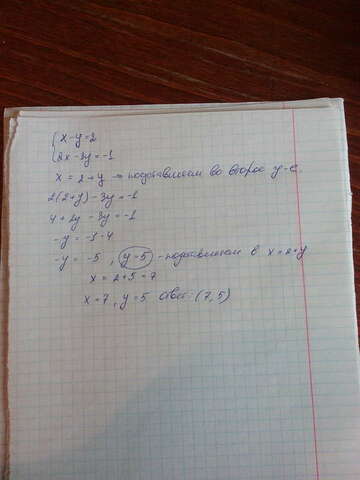 {x-y=2
{2x-3y=-1
x = 2+y → подставляем во второе у-е.
2(2+y)-3y=-1
4+2y-3y=-1
-y = -1-4
-y = -5 , y=5 - подставляем в x=2+y
x = 2+5=7
x=7, y=5 ответ: (7,5)